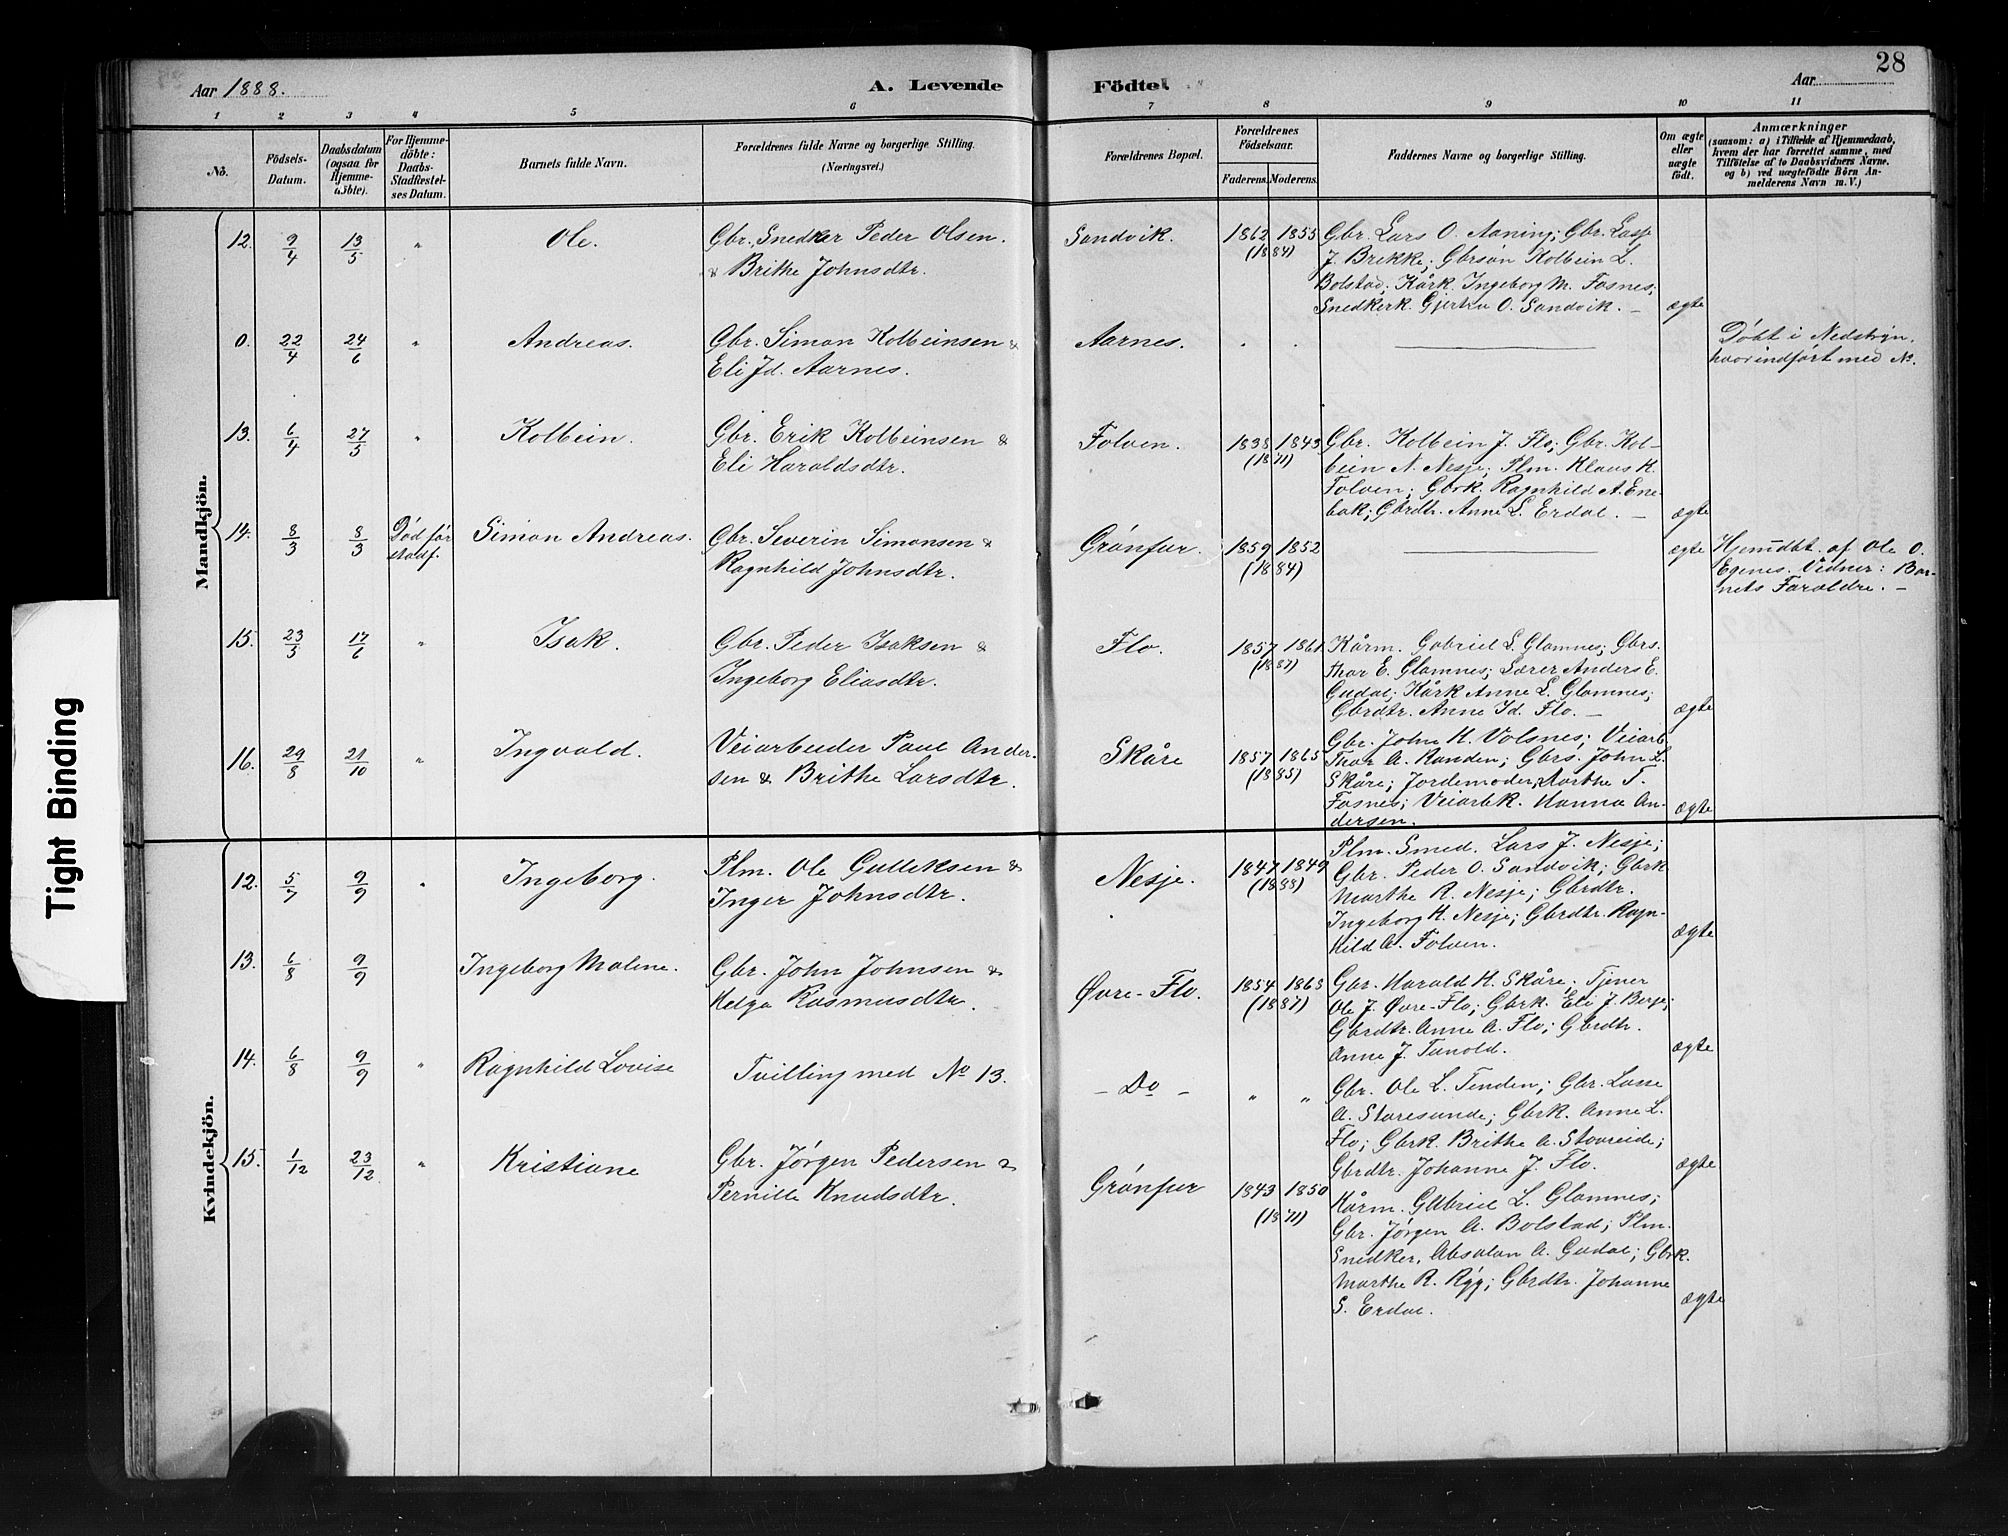 28
Aar 1888.
A. Levende
Födte.
Aar
1 2 3 4 5 6 7 8 9 10 11
No.
Födsels-
Datum.
Daabsdatum
(ogsaa for
Hjemme-
döbte).
For Hjemme-
döbte:
Daabs-
Stadfæstel-
ses Datum.
Barnets fulde Navn.
Forældrenes fulde Navne og borgerlige Stilling.
(Næringsvei.)
Forældrenes Bopæl.
Forældrenes
Födselsaar.
Faderens. Moderens.
Faddernes Navne og borgerlige Stilling.
Om ægte
eller
uægte
födt.
Anmærkninger
(saasom: a) i Tilfælde af Hjemmedaab,
hvem der har forrettet samme, med
Tilföielse af to Daabsvidners Navne,
og b) ved uægtefödte Börn An-
melderens Navn m. V.)
Mandkjön.
12. 9/4 13/5 " Ole. Gbr. Snedker Peder Olsen
& Brithe Johnsdtr.
Sandvik. 1862 1855
(1884)
Gbr. Lars O. Aaning; Gbr. Lasse
J. Brekke; Gbrsøn Kolbein L.
Bolstad; Kårk. Ingeborg M. Fosnes;
Snedkerk. Gjertru O. Sandvik. —
ægte
0. 22/4 24/6 " Andreas. Gbr. Simon Kolbeinsen &
Eli Jd. Aarnes.
Aarnes.
Döbt i Nedstryn,
hvor indført med No.
13. 6/4 27/5 " Kolbein. Gbr. Erik Kolbeinsen &
Eli Haroldsdtr.
Folven. 1838 1843
(1871)
Gbr. Kolbein J. Flo; Gbr. Kol-
bein N. Nesje; Plm. Klaus K.
Folven; Gbrk. Ragnhild A. Ene-
bak; Gbrdtr. Anne L. Erdal. —
ægte
14. 8/3 8/3 Död før
stadf.
Simon Andreas. Gbr. Severin Simonsen &
Ragnhild Johnsdtr.
Grönfur. 1859 1852
(1884)
ægte
Hjemdbt. af Ole O.
Egenes. Vidner: Bar-
nets Forældre. —
15. 23/5 17/6 " Isak. Gbr. Peder Isaksen &
Ingeborg Eliasdtr.
Flo. 1857 1861
(1887)
Kårm. Gabriel L. Glomnes; Gbrs.
Thor E. Glomnes; Lærer Anders E.
Gudal; Kårk Anne L. Glomnes;
Gbrdtr. Anne Id. Flo. —
ægte
16. 29/8 21/10 " Ingvald. Veiarbeider Paul Ander-
sen & Brithe Larsdtr.
Skåre 1857 1865
(1885)
Gbr. John H. Volsnes; Veiarb.
Thor A. Randen; Gbrs. John L.
Skåre; Jordemoder Marthe T.
Fosnes; Veiarbk. Hanna An-
dersen.
ægte
Kvindekjön.
12. 5/7 9/9 " Ingeborg. Plm. Ole Gulleksen &
Inger Johnsdtr.
Nesje. 1847 1849
Plm. Smed. Lars J. Nesje;
Gbr. Peder O. Sandvik; Gbrk
Marthe R. Nesje; Gbrdtr.
Ingeborg H. Nesje; Gbrdtr. Ragn-
hild A. Folven.
ægte
13. 6/8 9/9 Ingeborg Malene. Gbr. John Johnsen &
Helga Rasmusdtr.
Øvre-Flo. 1854
(1887)
Gbr. Harald H. Skåre; Tjener
Ole J. Øvre-Flo; Gbrk. Eli J. Berge;
Gbrdtr. Anne A. Flo; Gbrdtr.
Anne J. Tunold.
ægte
14. 6/8 9/9 " Ragnhild Lovise Tvilling med No 13.
– Do – " "
Gbr. Ole L. Tenden; Gbr. Lasse
A. Storesunde; Gbrk. Anne L.
Flo; Gbrk. Brithe A. Stoveide;
Gbrdtr. Johanne J. Flo.
ægte
15. 1/12 23/12 " Kristiane Gbr. Jörgen Pedersen &
Pernille Knudsdtr.
Grönfur 1843 1850
(1871)
Kårm. Gabriel L. Glomnes;
Gbr. Jørgen A. Bolstad; Plm.
Snedker, Absalon A. Gudal; Gbrk.
Marthe R. Ryg; Gbrdtr. Johanne
S. Erdal.
ægte
Tight Binding